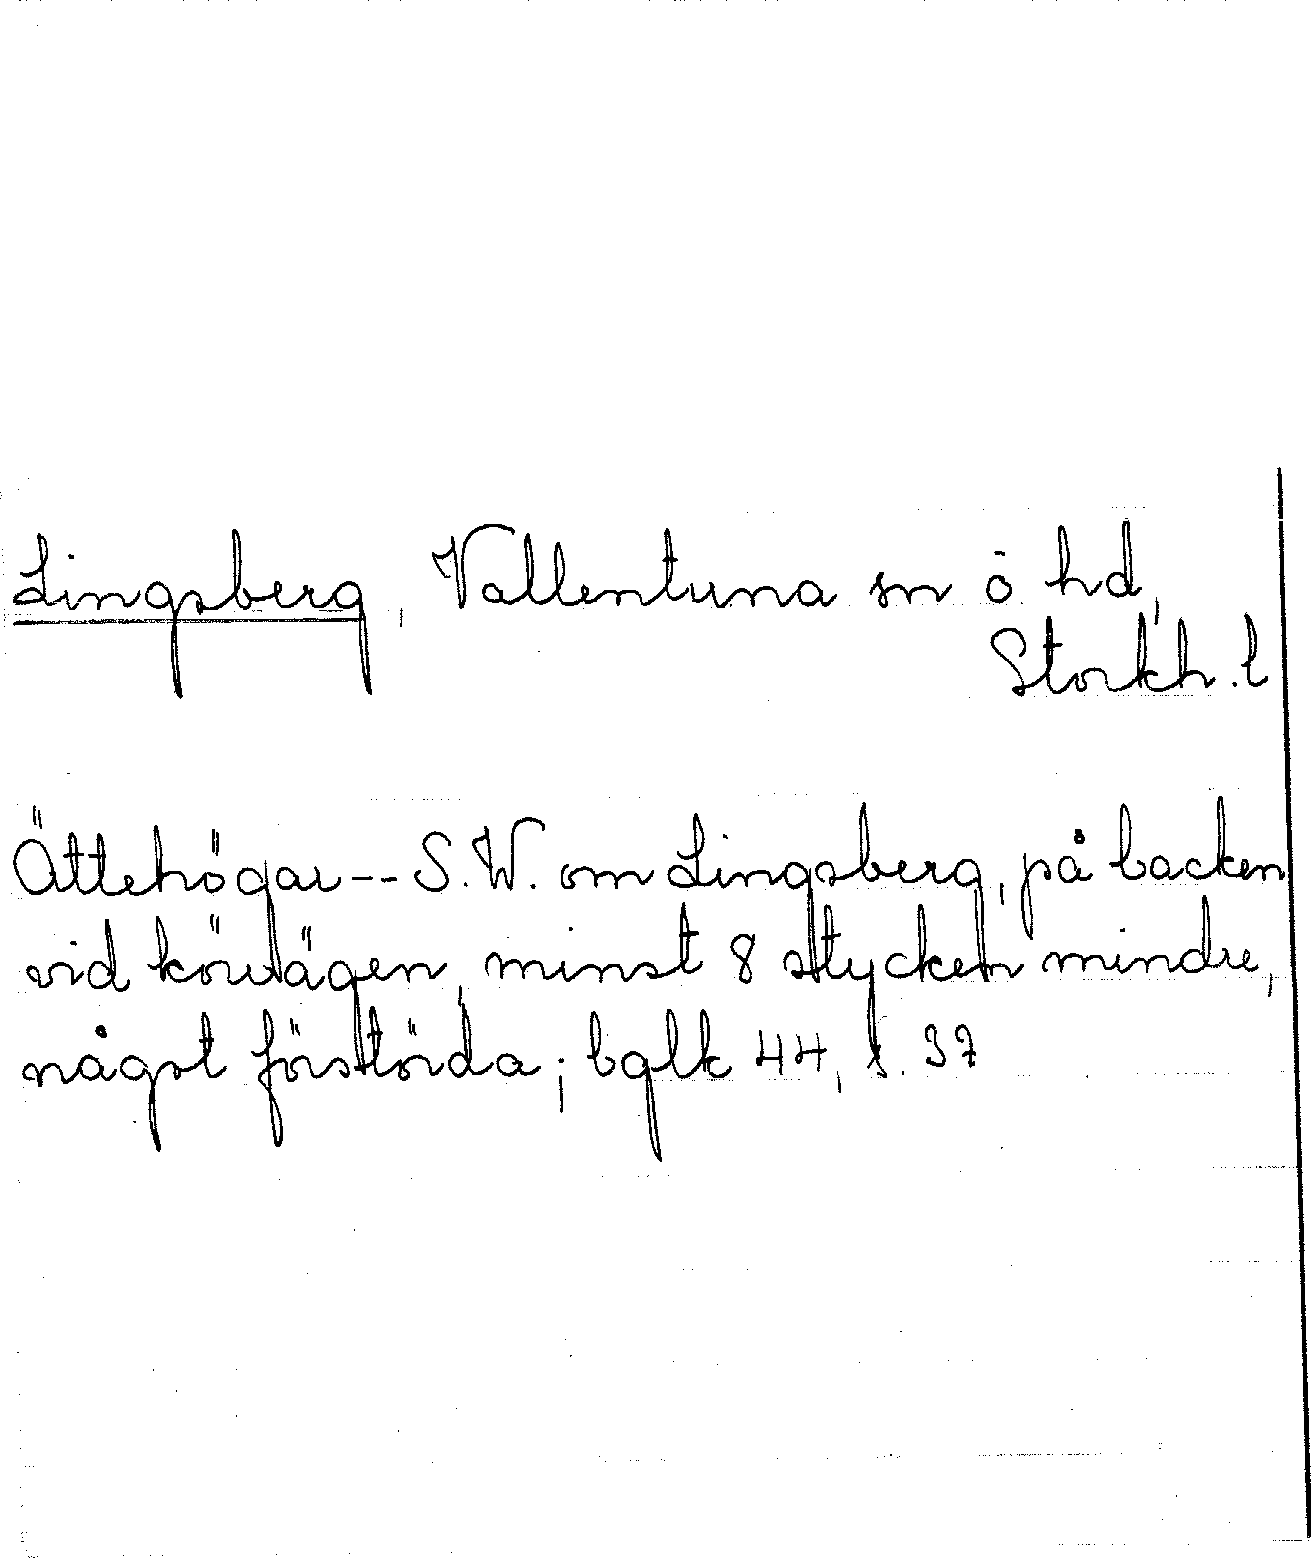 Lingsberg, Vallentuna sn o hd,
Stockh. l
Ättehögar -- S.W. om Lingsberg, på backen
vid körvägen, minst 8 stycken mindre,
något förstörda; bglk 44, s. 37